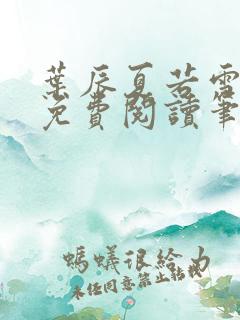 葉辰夏若雪
免費閱讀筆
螞蟻很給力
未經同意禁止轉載